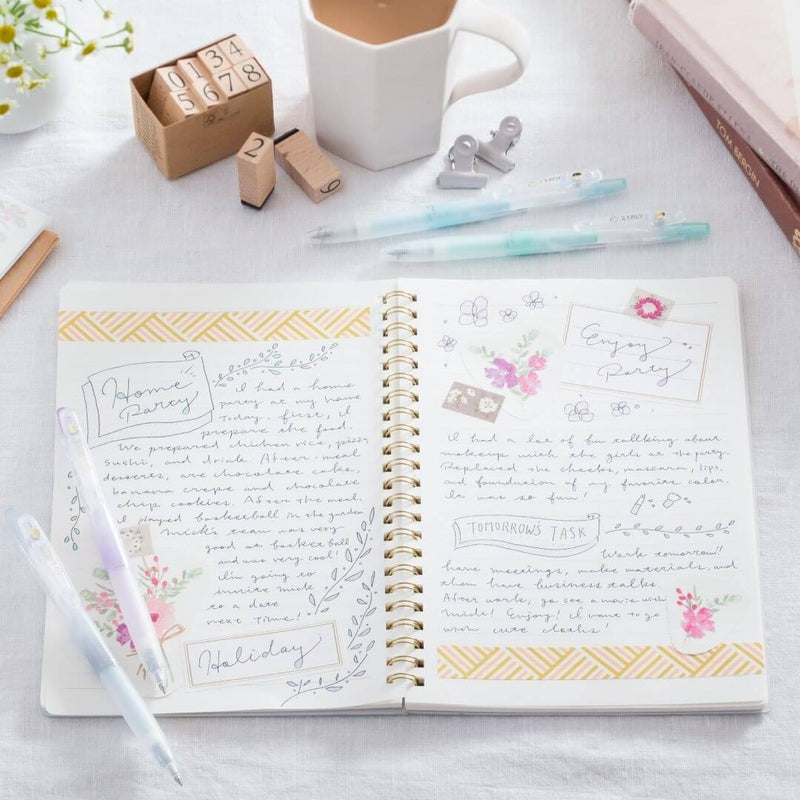 0 1 3 4
5 6 7 8
2
TOM BERGIN
Home
Party
I had a home
party at my home
Today, first, I
prepare the food.
We prepared chicken rice, pizza,
sushi, and drink. After-meal
desserts, are chocolate cake,
banana crepe and chocolate
chip cookies. After the meal,
I played basketball in the garden.
Mick's team was very
good at basketball
and was very cool!
I'm going to
invite Mick
to a date
next time!
Holiday
Enjoy
Party
I had a lot of fun talking about
makeup with the girls at the party.
Replaced the cheeks, mascara, lips,
and foundation of my favorite color.
It was so fun!
TOMORROW'S TASK
Work tomorrow!
have meetings, make materials, and
then have business talks.
After work, go see a movie with
Mick! Enjoy! I want to go
with cute cloths!